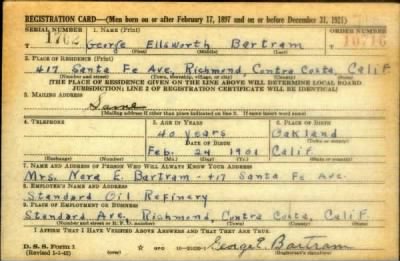 REGISTRATION CARD—(Men born on or after February 17, 1897 and on or before December 31, 1921)
SERIAL NUMBER 1. NAME (Print) ORDER NUMBER
T 1762 George Ellsworth Bartram T 10716
(First) (Middle) (Last)
2. PLACE OF RESIDENCE (Print)
417 Santa Fe Ave. Richmond, Contra Costa, Calif
(Number and street) (Town, township, village, or city) (County) (State)
[THE PLACE OF RESIDENCE GIVEN ON THE LINE ABOVE WILL DETERMINE LOCAL BOARD
JURISDICTION; LINE 2 OF REGISTRATION CERTIFICATE WILL BE IDENTICAL]
3. MAILING ADDRESS
Same
[Mailing address if other than place indicated on line 2. If same insert word same]
4. TELEPHONE 5. AGE IN YEARS 6. PLACE OF BIRTH
40 years Oakland
DATE OF BIRTH (Town or county)
Feb. 24 1901 Calif
(Exchange) (Number) (Mo.) (Day) (Yr.) (State or country)
7. NAME AND ADDRESS OF PERSON WHO WILL ALWAYS KNOW YOUR ADDRESS
Mrs. Nora E. Bartram - 417 Santa Fe Ave.
8. EMPLOYER'S NAME AND ADDRESS
Standard Oil Refinery
9. PLACE OF EMPLOYMENT OR BUSINESS
Standard Ave. Richmond, Contra Costa, Calif
(Number and street or R. F. D. number) (Town) (County) (State)
I AFFIRM THAT I HAVE VERIFIED ABOVE ANSWERS AND THAT THEY ARE TRUE.
D. S. S. Form 1 GPO George E. Bartram
(Revised 1-1-42) (Registrant's signature)